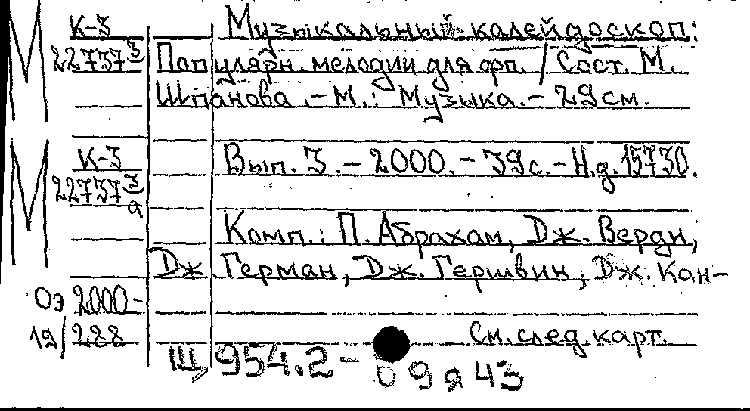 М К-3 Музыкальный калейдоскоп:
22737 3 Популярн. мелодии для фп. / Сост. М.
Шпанова. - М.: Музыка. - 29 см.
М К-3 Вып. 3. - 2000. - 39 с. - Н.д. 15730.
22737 3
а
Комп.: П. Абрахам, Дж. Верди,
Дж. Герман, Дж. Гершвин, Дж. Кан-
Оэ 2000-
19/288 См. след. карт.
Щ 954.2-
09я43